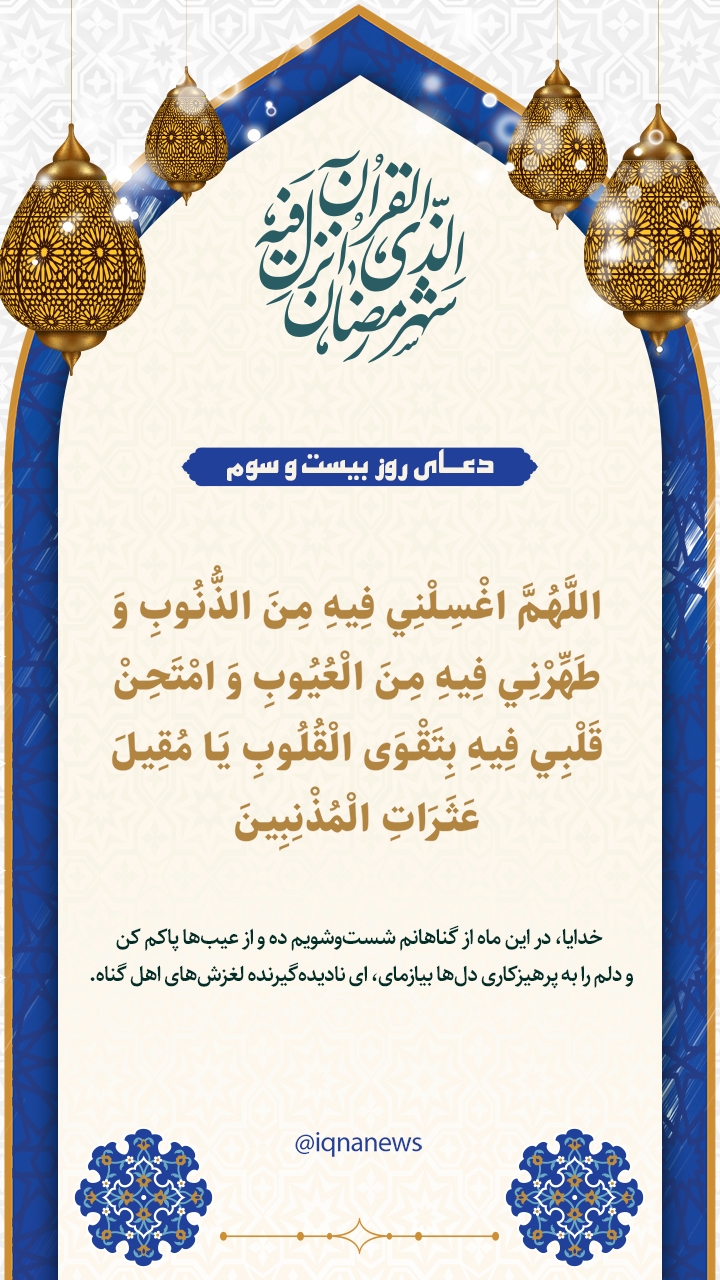 شهر رمضان الذی انزل فیه القرآن
دعای روز بیست و سوم
اللَّهُمَّ اغْسِلْنِي فِيهِ مِنَ الذُّنُوبِ وَ
طَهِّرْنِي فِيهِ مِنَ الْعُيُوبِ وَ امْتَحِنْ
قَلْبِي فِيهِ بِتَقْوَى الْقُلُوبِ يَا مُقِيلَ
عَثَرَاتِ الْمُذْنِبِينَ
خدایا، در این ماه از گناهانم شست‌وشویم ده و از عیب‌ها پاکم کن
و دلم را به پرهیزکاری دل‌ها بیازمای، ای نادیده‌گیرنده لغزش‌های اهل گناه.
@iqnanews